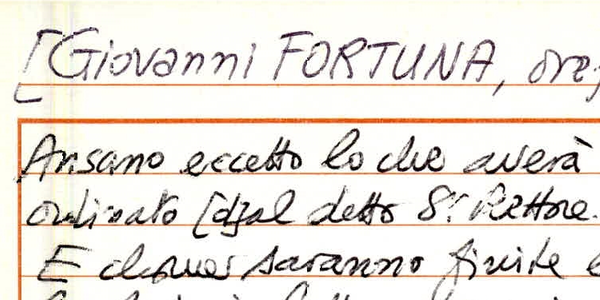 [Giovanni FORTUNA, oref
Ansano eccetto lo che averà
ordinato [d]al detto S.r Rettore.
E saranno finite